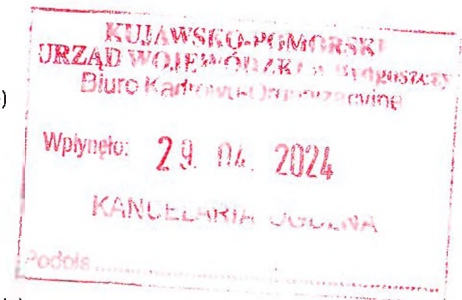 KUJAWSKO-POMORSKI
URZĄD WOJEWÓDZKI w Bydgoszczy
Biuro
Wpłynęło: 29. 04. 2024
KANCELARIA OGÓLNA
Podpis